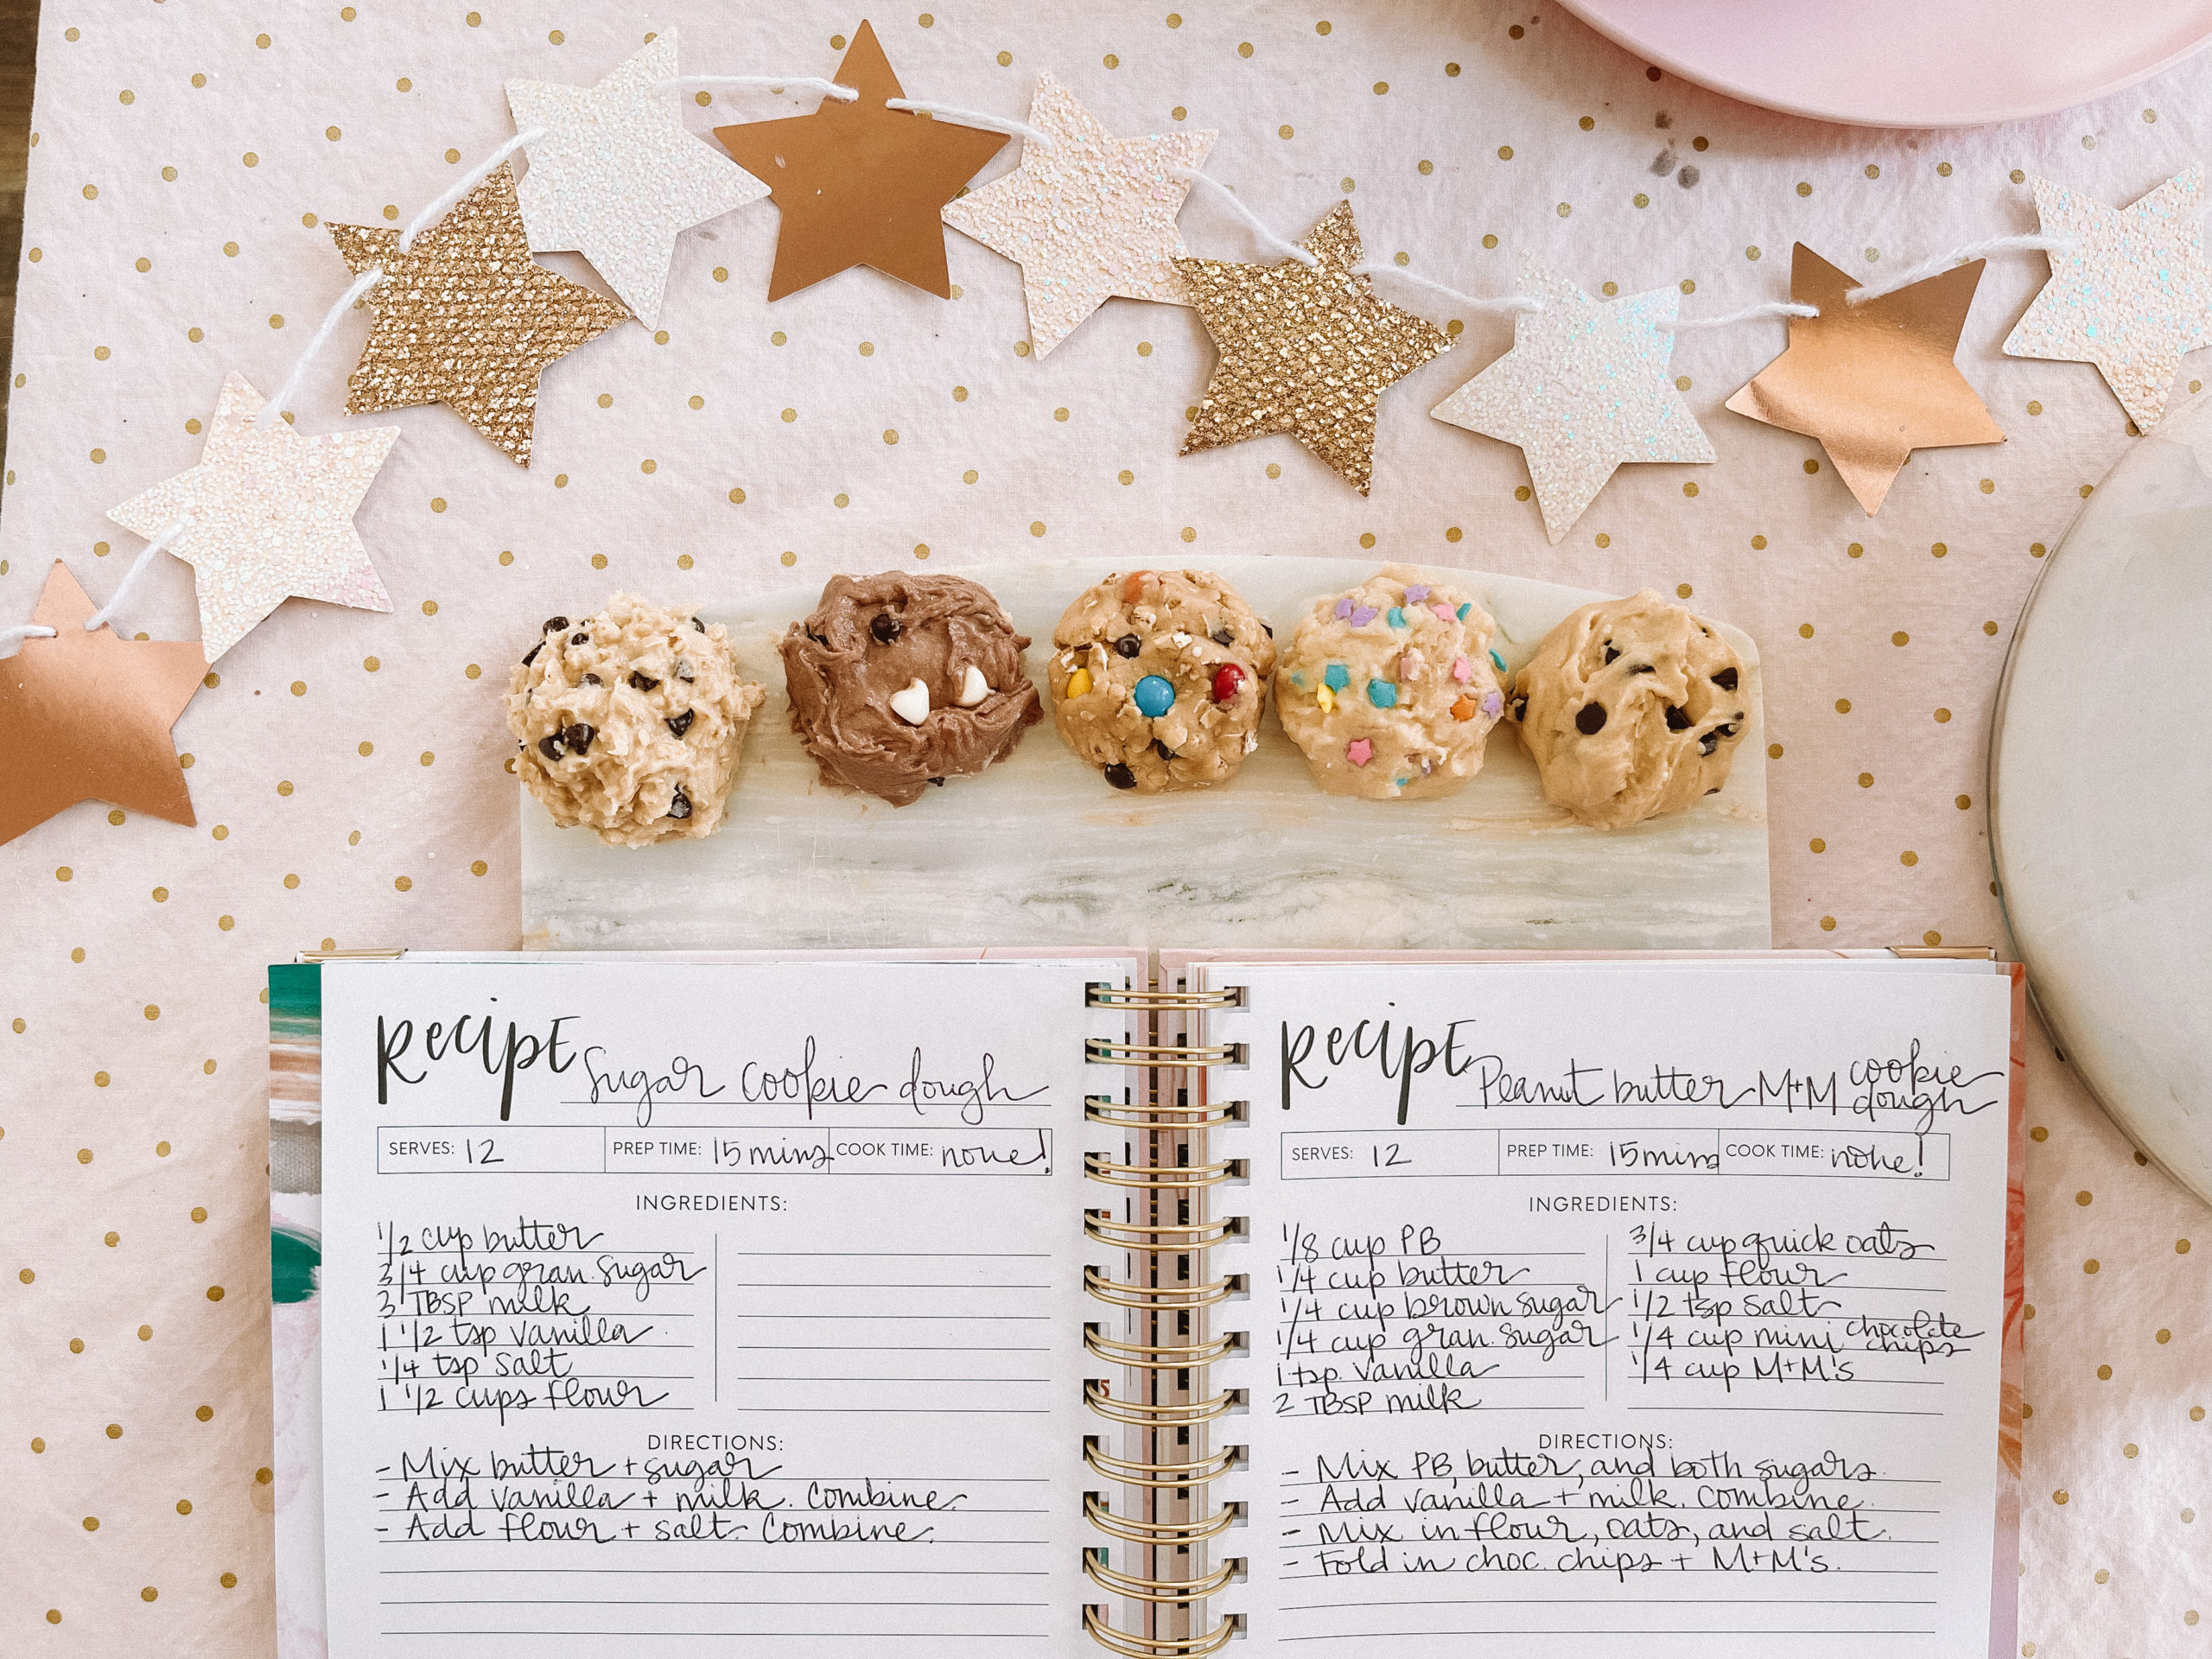 Recipe Sugar cookie dough
SERVES: 12 PREP TIME: 15 mins COOK TIME: none!
INGREDIENTS:
1/2 cup butter
3/4 cup gran. sugar
3 TBSP milk
1 1/2 tsp vanilla
1/4 tsp salt
1 1/2 cups flour
DIRECTIONS:
- Mix butter + sugar
- Add vanilla + milk. Combine.
- Add flour + salt. Combine.
Recipe Peanut butter M+M cookie dough
SERVES: 12 PREP TIME: 15 mins COOK TIME: none!
INGREDIENTS:
1/8 cup PB
1/4 cup butter
1/4 cup brown sugar
1/4 cup gran. sugar
1 tsp. vanilla
2 TBSP milk
3/4 cup quick oats
1 cup flour
1/2 tsp salt
1/4 cup mini chocolate chips
1/4 cup M+M's
DIRECTIONS:
- Mix PB, butter, and both sugars.
- Add vanilla + milk. Combine.
- Mix in flour, oats, and salt.
- Fold in choc. chips + M+M's.